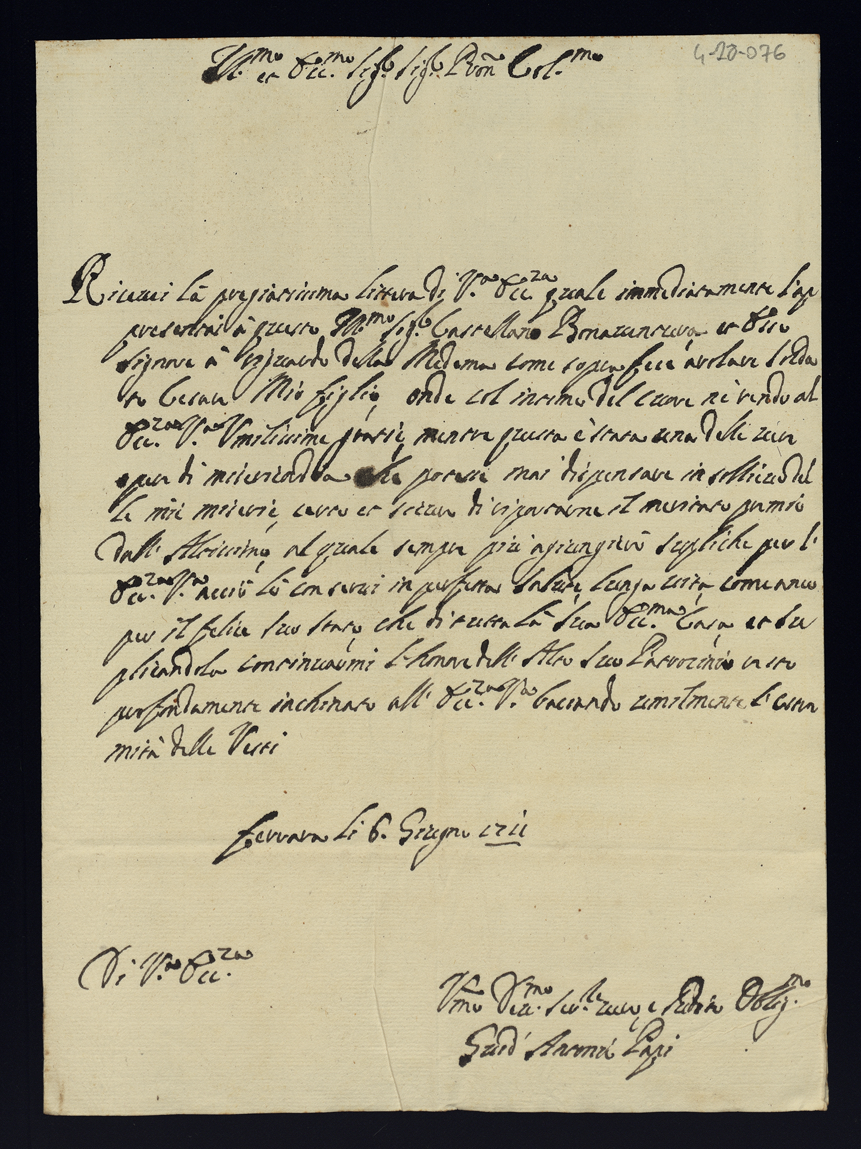 Ill.mo et Ecc.mo Sig.r Sig.r Pron Col.mo
4-20-076
Riceuei la pregiatissima lettera di V.a Ecc.za quale immediatamente l'ap
presentai à questo Ill.mo Sig.r Castellano Bonauentura et esso
signore à riguardo della Medema come sopra fece arolare solda
to Cesare Mio figlio, onde col intimo del cuore ne rendo al
Ecc.za V.a Vmilissime gratie, mentre questa è stata una delle
opere di misericordia che potesse mai dispensare in sollieuo del
le mie miserie, certo et sicuro di riportarne il meritato premio
dall' Altissimo, al quale sempre più agiungierò supliche per l'
Ecc.za V.a acciò la conserui in perfetta salute, lunga uita, come anco
per il felice suo stato, che di tutta la sua Ecc.ma Casa, et su
plicandola continuarmi l'honore dell' Alto suo Patrocinio resto
profondamente inchinato all' Ecc.za V.a baciando umilmente l'estre
mità delle Vesti
Ferrara li 6. Giugno 1711
Di V.a Ecc.za
Vmo Deu.mo Ser.le uero, e Obblig.mo
Guid' Antonio Papi